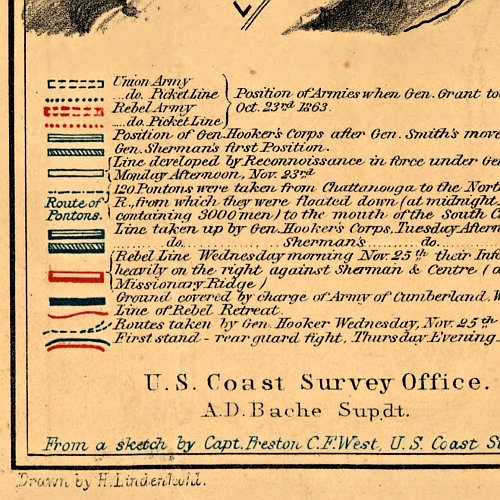 Union Army
do. Picket Line
Rebel Army
do. Picket Line
Position of Armies when Gen. Grant to
Oct. 23rd 1863.
Position of Gen. Hooker's Corps after Gen. Smith's move
Gen. Sherman's first Position.
Line developed by Reconnoissance in force under Gen
Monday Afternoon, Nov. 23rd
Route of Pontons.
120 Pontons were taken from Chattanooga to the Nort
R., from which they were floated down (at midnight
containing 3000 men) to the mouth of the South C
Line taken up by Gen. Hooker's Corps, Tuesday Aftern
do. Sherman's do.
Rebel Line Wednesday morning Nov. 25th their Inf
heavily on the right against Sherman & Centre (
Missionary Ridge)
Ground covered by charge of Army of Cumberland. W
Line of Rebel Retreat.
Routes taken by Gen. Hooker Wednesday, Nov. 25th
First stand - rear guard fight, Thursday Evening
U.S. Coast Survey Office.
A.D. Bache Supdt.
From a sketch by Capt. Preston C.F. West, U.S. Coast S
Drawn by H. Lindenkohl.